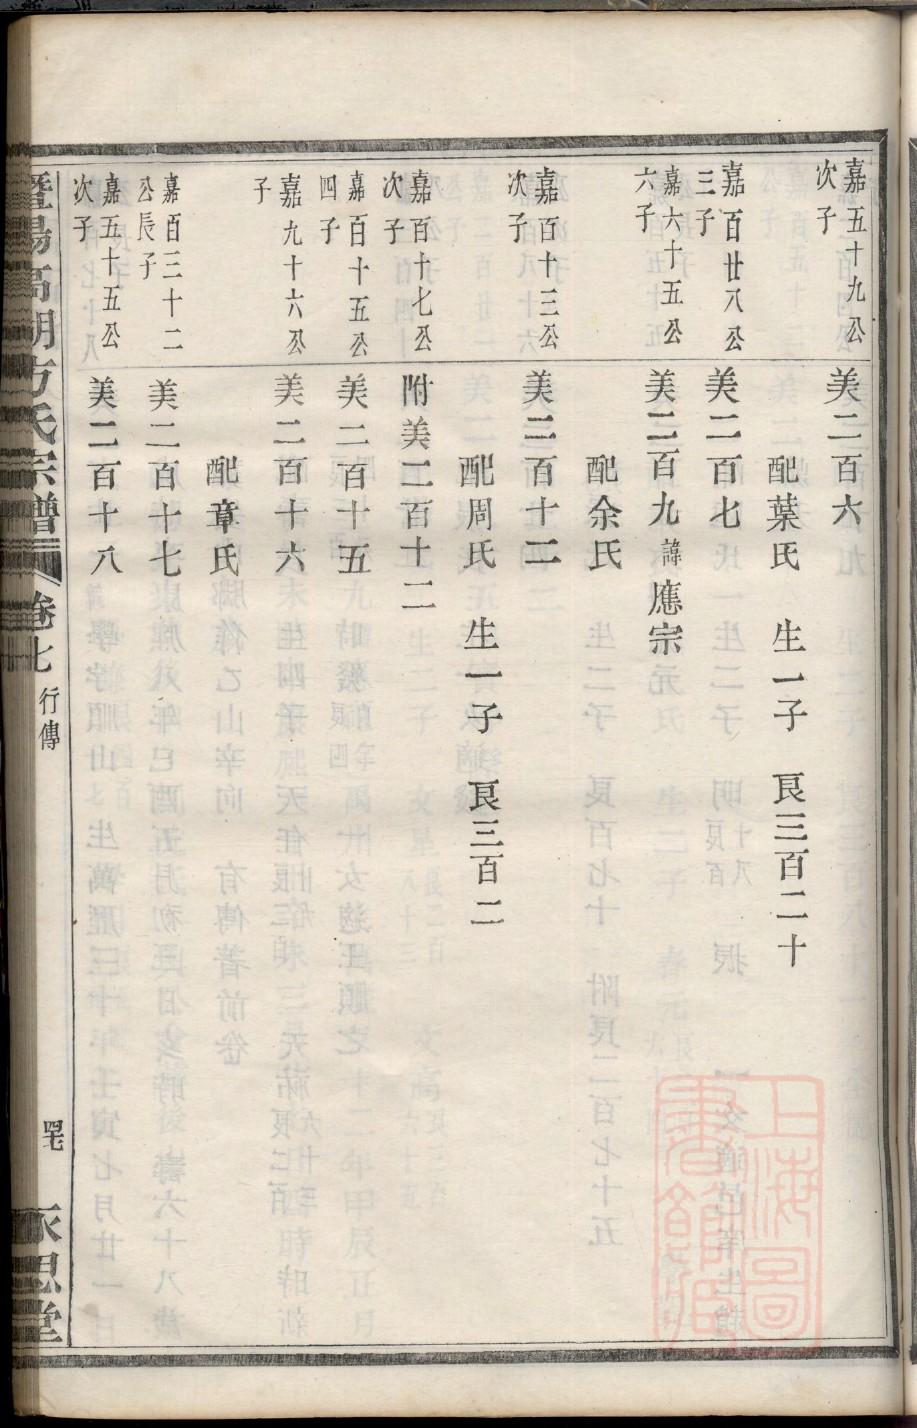 嘉五十九公
次子
美二百六
配葉氏　生一子　良三百二十
嘉百廿八公
三子
美二百七
嘉六十五公
六子
美二百九 諱 應宗
配余氏
嘉百十三公
次子
美二百十二
配周氏　生一子　良三百二
嘉百十七公
次子
附美二百十二
嘉百十五公
四子
美二百十五
嘉九十六公
子
美二百十六
配章氏
嘉百三十二
公長子
美二百十七
嘉五十五公
次子
美二百十八
暨陽高湖方氏宗譜 卷七 行傳 四七 永思堂
上海圖
書館藏